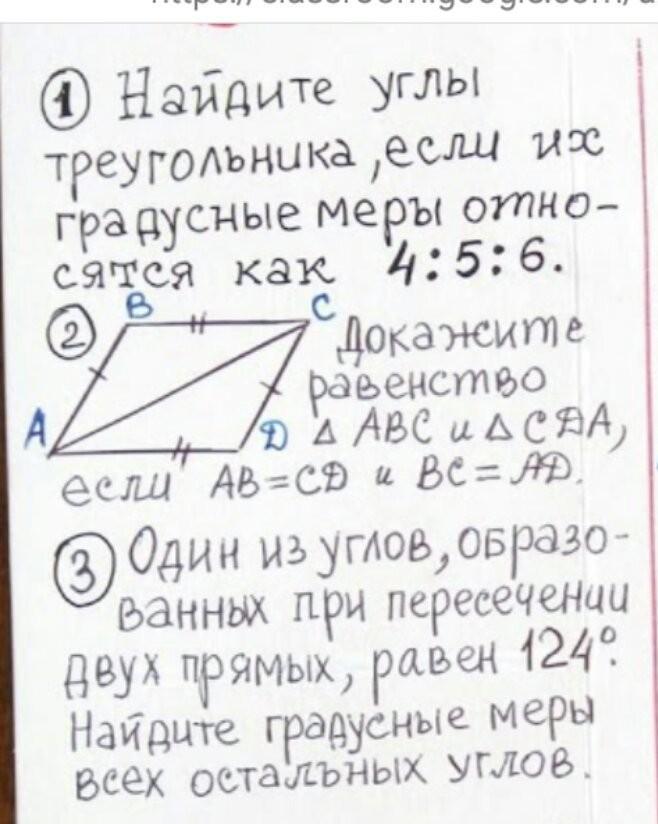 ① Найдите углы
треугольника, если их
градусные меры отно-
сятся как 4:5:6.
B C
② Докажите
равенство
A D Δ ABC и Δ CDA,
если AB=CD и BC=AD.
③ Один из углов, образо-
ванных при пересечении
двух прямых, равен 124°.
Найдите градусные меры
всех остальных углов.